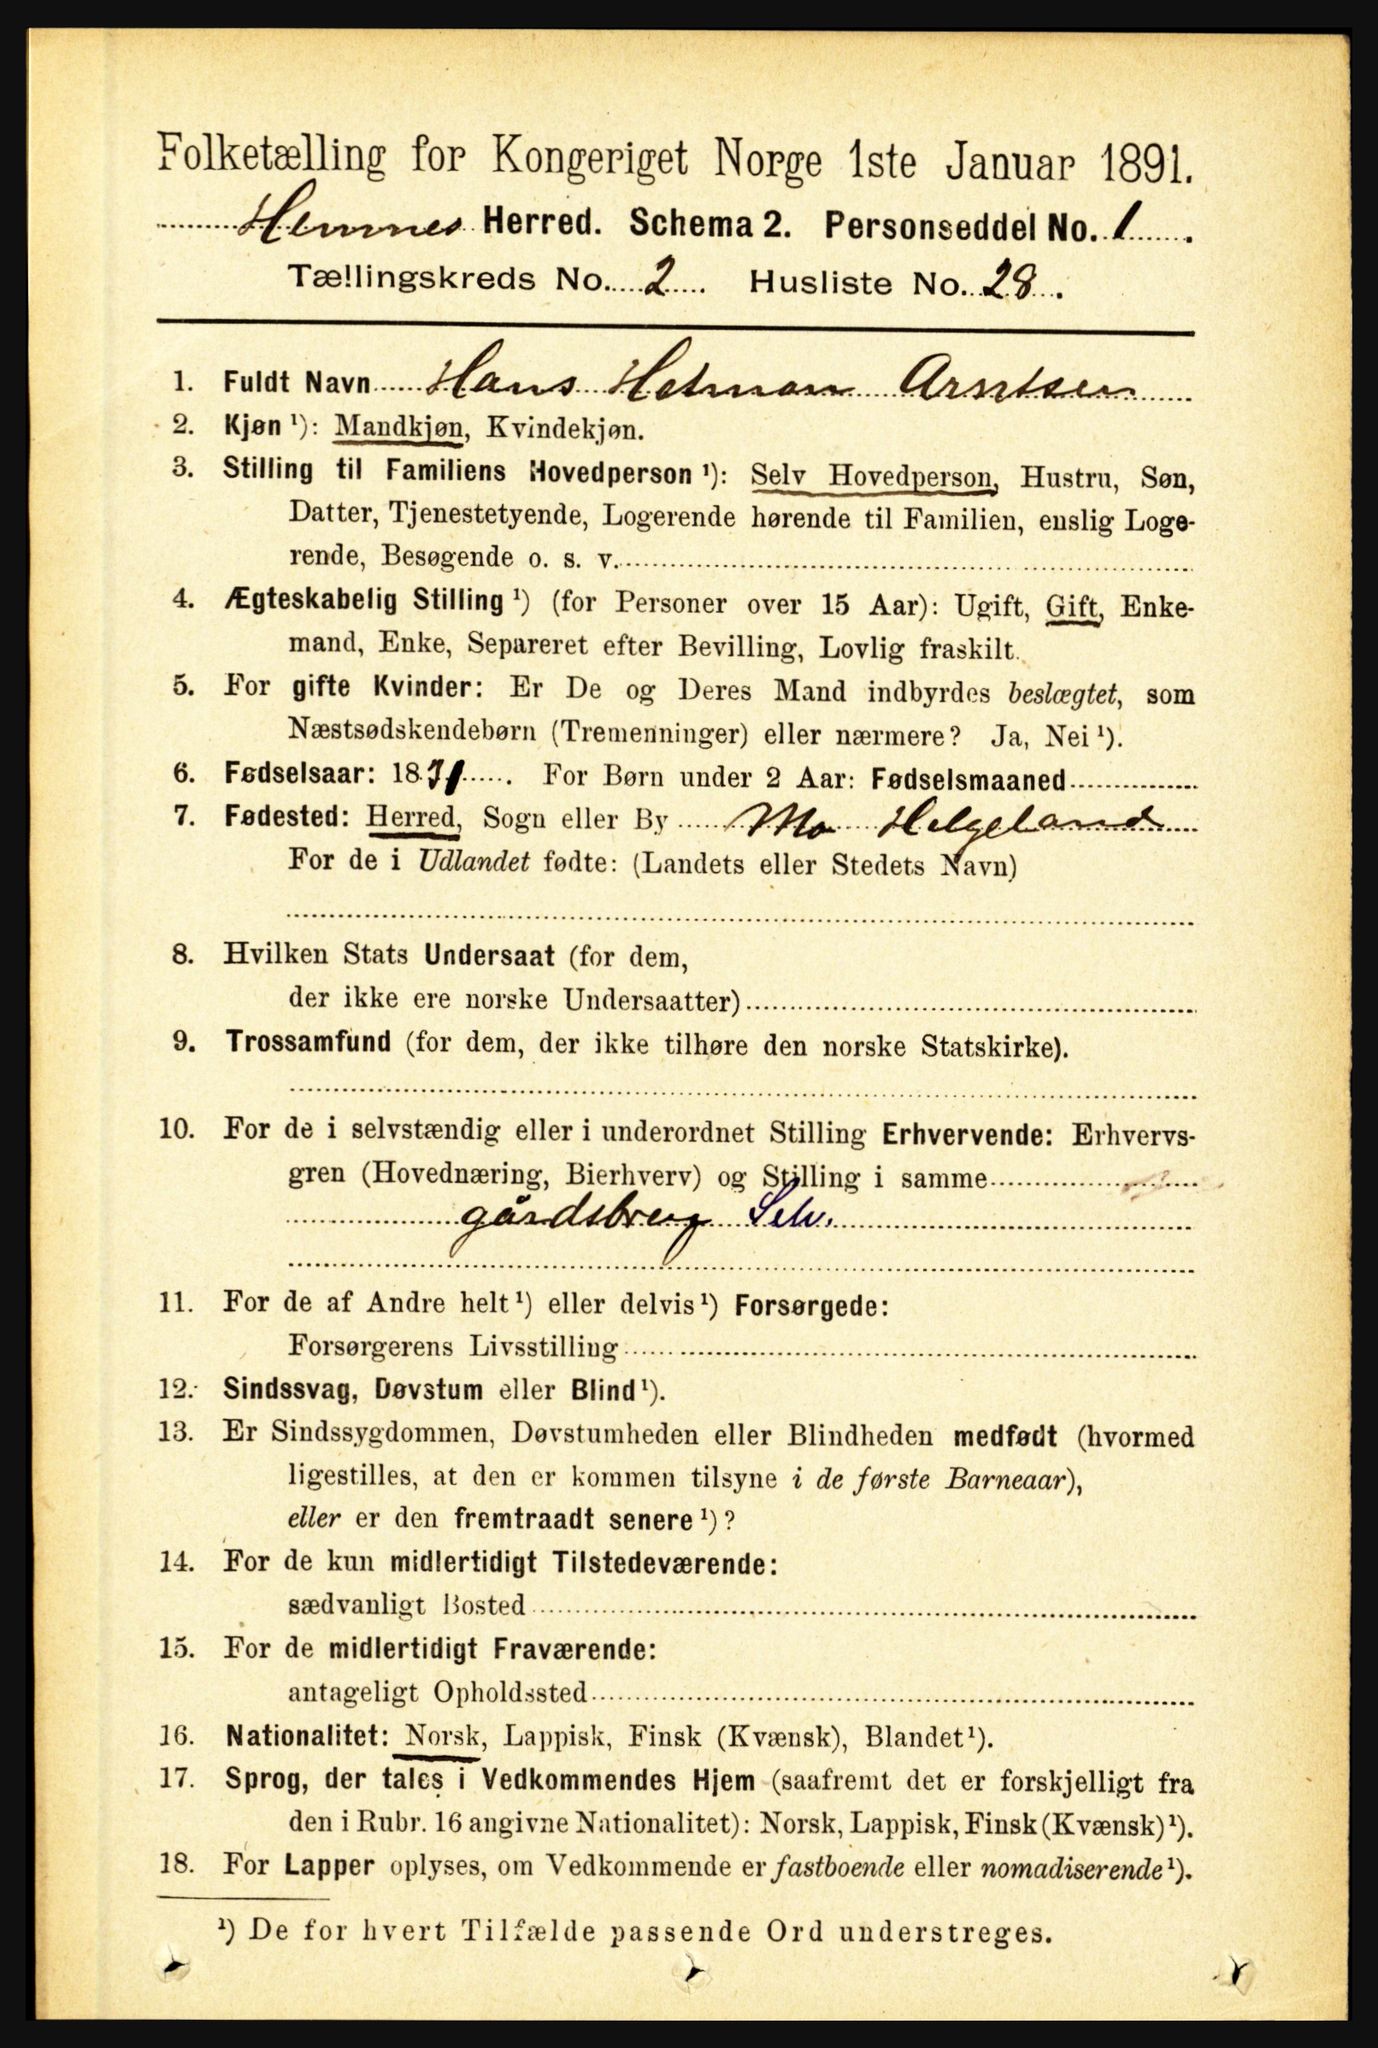 Folketælling for Kongeriget Norge 1ste Januar 1891.
Hemnes Herred. Schema 2. Personseddel No. 1
Tællingskreds No. 2 Husliste No. 28.
1. Fuldt Navn Hans Hetman Arntsen
2. Kjøn ¹): Mandkjøn, Kvindekjøn.
3. Stilling til Familiens Hovedperson ¹): Selv Hovedperson, Hustru, Søn,
Datter, Tjenestetyende, Logerende hørende til Familien, enslig Loge-
rende, Besøgende o. s. v.
4. Ægteskabelig Stilling ¹) (for Personer over 15 Aar): Ugift, Gift, Enke-
mand, Enke, Separeret efter Bevilling, Lovlig fraskilt.
5. For gifte Kvinder: Er De og Deres Mand indbyrdes beslægtet, som
Næstsødskendebørn (Tremenninger) eller nærmere? Ja, Nei ¹).
6. Fødselsaar: 1831. For Børn under 2 Aar: Fødselsmaaned
7. Fødested: Herred, Sogn eller By Mo Helgeland
For de i Udlandet fødte: (Landets eller Stedets Navn)
8. Hvilken Stats Undersaat (for dem,
der ikke ere norske Undersaatter)
9. Trossamfund (for dem, der ikke tilhøre den norske Statskirke).
10. For de i selvstændig eller i underordnet Stilling Erhvervende: Erhvervs-
gren (Hovednæring, Bierhverv) og Stilling i samme
gårdsbrug Selv.
11. For de af Andre helt ¹) eller delvis ¹) Forsørgede:
Forsørgerens Livsstilling
12. Sindssvag, Døvstum eller Blind ¹).
13. Er Sindssygdommen, Døvstumheden eller Blindheden medfødt (hvormed
ligestilles, at den er kommen tilsyne i de første Barneaar),
eller er den fremtraadt senere ¹)?
14. For de kun midlertidigt Tilstedeværende:
sædvanligt Bosted
15. For de midlertidigt Fraværende:
antageligt Opholdssted
16. Nationalitet: Norsk, Lappisk, Finsk (Kvænsk), Blandet ¹).
17. Sprog, der tales i Vedkommendes Hjem (saafremt det er forskjelligt fra
den i Rubr. 16 angivne Nationalitet): Norsk, Lappisk, Finsk (Kvænsk) ¹).
18. For Lapper oplyses, om Vedkommende er fastboende eller nomadiserende ¹).
¹) De for hvert Tilfælde passende Ord understreges.